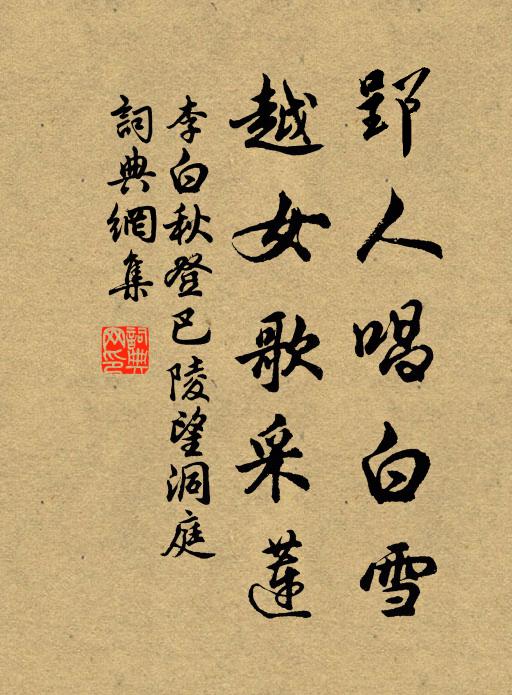 郢人唱白雪
越女歌采蓮
李白秋登巴陵望洞庭
詞典網集
詞典網印